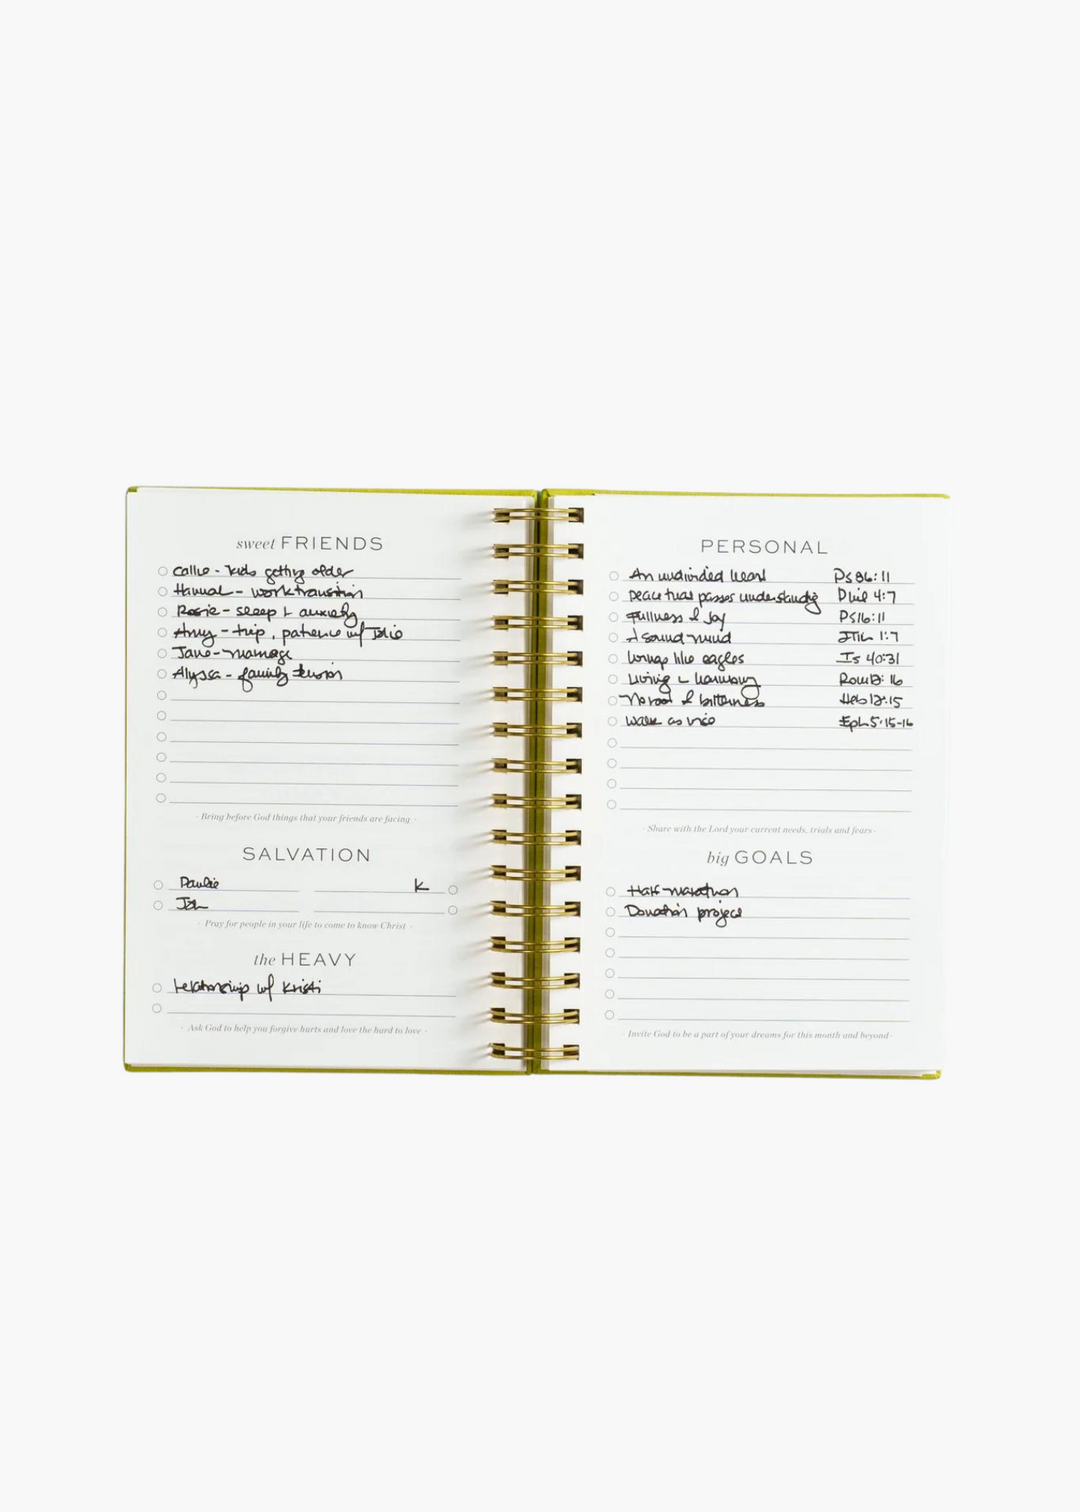 sweet FRIENDS
Callie - kids getting older
Hannah - work transition
Rosie - sleep + anxiety
Amy - trip, patience w/
Jane - marriage
Alyssa - family tension
· Bring before God things that your friends are facing ·
SALVATION
Paulie K
· Pray for people in your life to come to know Christ ·
the HEAVY
relationship w/ Kristi
· Ask God to help you forgive hurts and love the hard to love ·
PERSONAL
An undivided heart Ps 86:11
peace that passes understanding Phil 4:7
Fullness of Joy Ps 16:11
A sound mind 1:7
wings like eagles Is 40:31
Living in harmony Rom 12:16
No root of bitterness Heb 12:15
Walk as wise Eph 5:15-16
· Share with the Lord your current needs, trials and fears ·
big GOALS
Half-marathon
Donation project
· Invite God to be a part of your dreams for this month and beyond ·